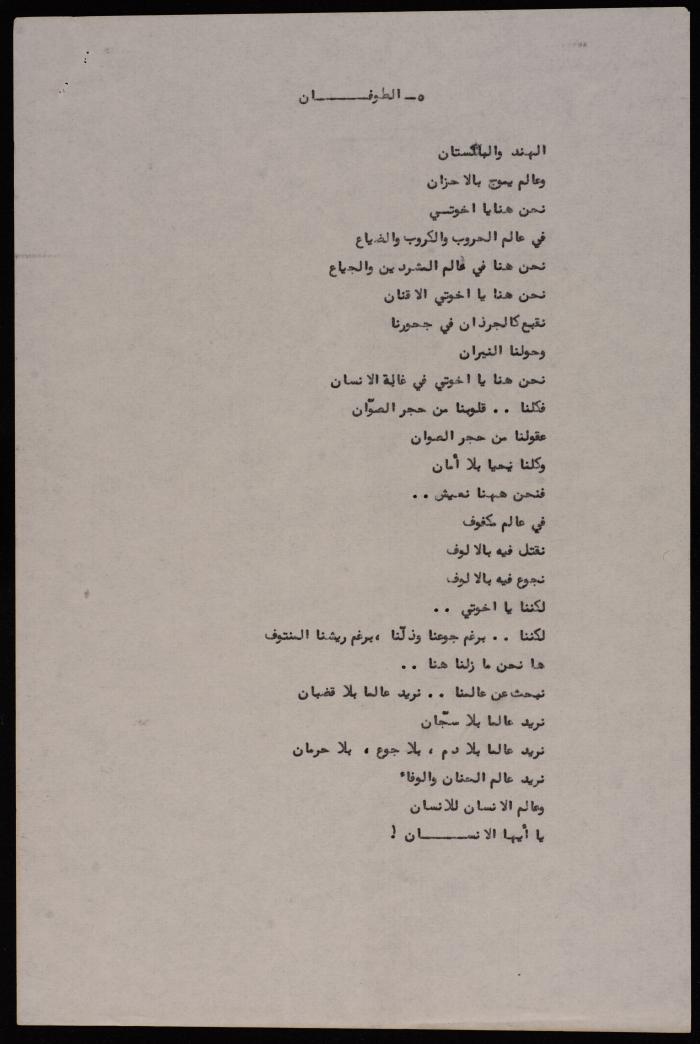 ٥ـ الطوفـــــــان
الهند والباكستان
وعالم يموج بالاحزان
نحن هنايا اخوتـي
في عالم الحروب والكروب والضياع
نحن هنا في عالم المشردين والجياع
نحن هنا يا اخوتي الاقنان
نقبع كالجرذان في جحورنا
وحولنا النيران
نحن هنا يا اخوتي في غابة الانسان
فكلنا . . قلوبنا من حجر الصوّان
عقولنا من حجر الصوان
وكلنا نحيا بلا أمان
فنحن ههنا نعيش . .
في عالم مكفوف
نقتل فيه بالالوف
نجوع فيه بالالوف
لكننا يا اخوتي . .
لكننا . . برغم جوعنا وذلّنا ،برغم ريشنا المنتوف
ها نحن ما زلنا هنا . .
نبحث عن عالمنا . . نريد عالما بلا قضبان
نريد عالما بلا سجّان
نريد عالما بلا دم ، بلا جوع ، بلا حرمان
نريد عالم الحنان والوفاء
وعالم الانسان للانسان
يا أيها الانســـــــان !